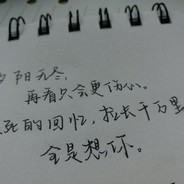 夕阳无尽,
再看只会更伤心。
死的回忆,拉长千万里
全是想你。